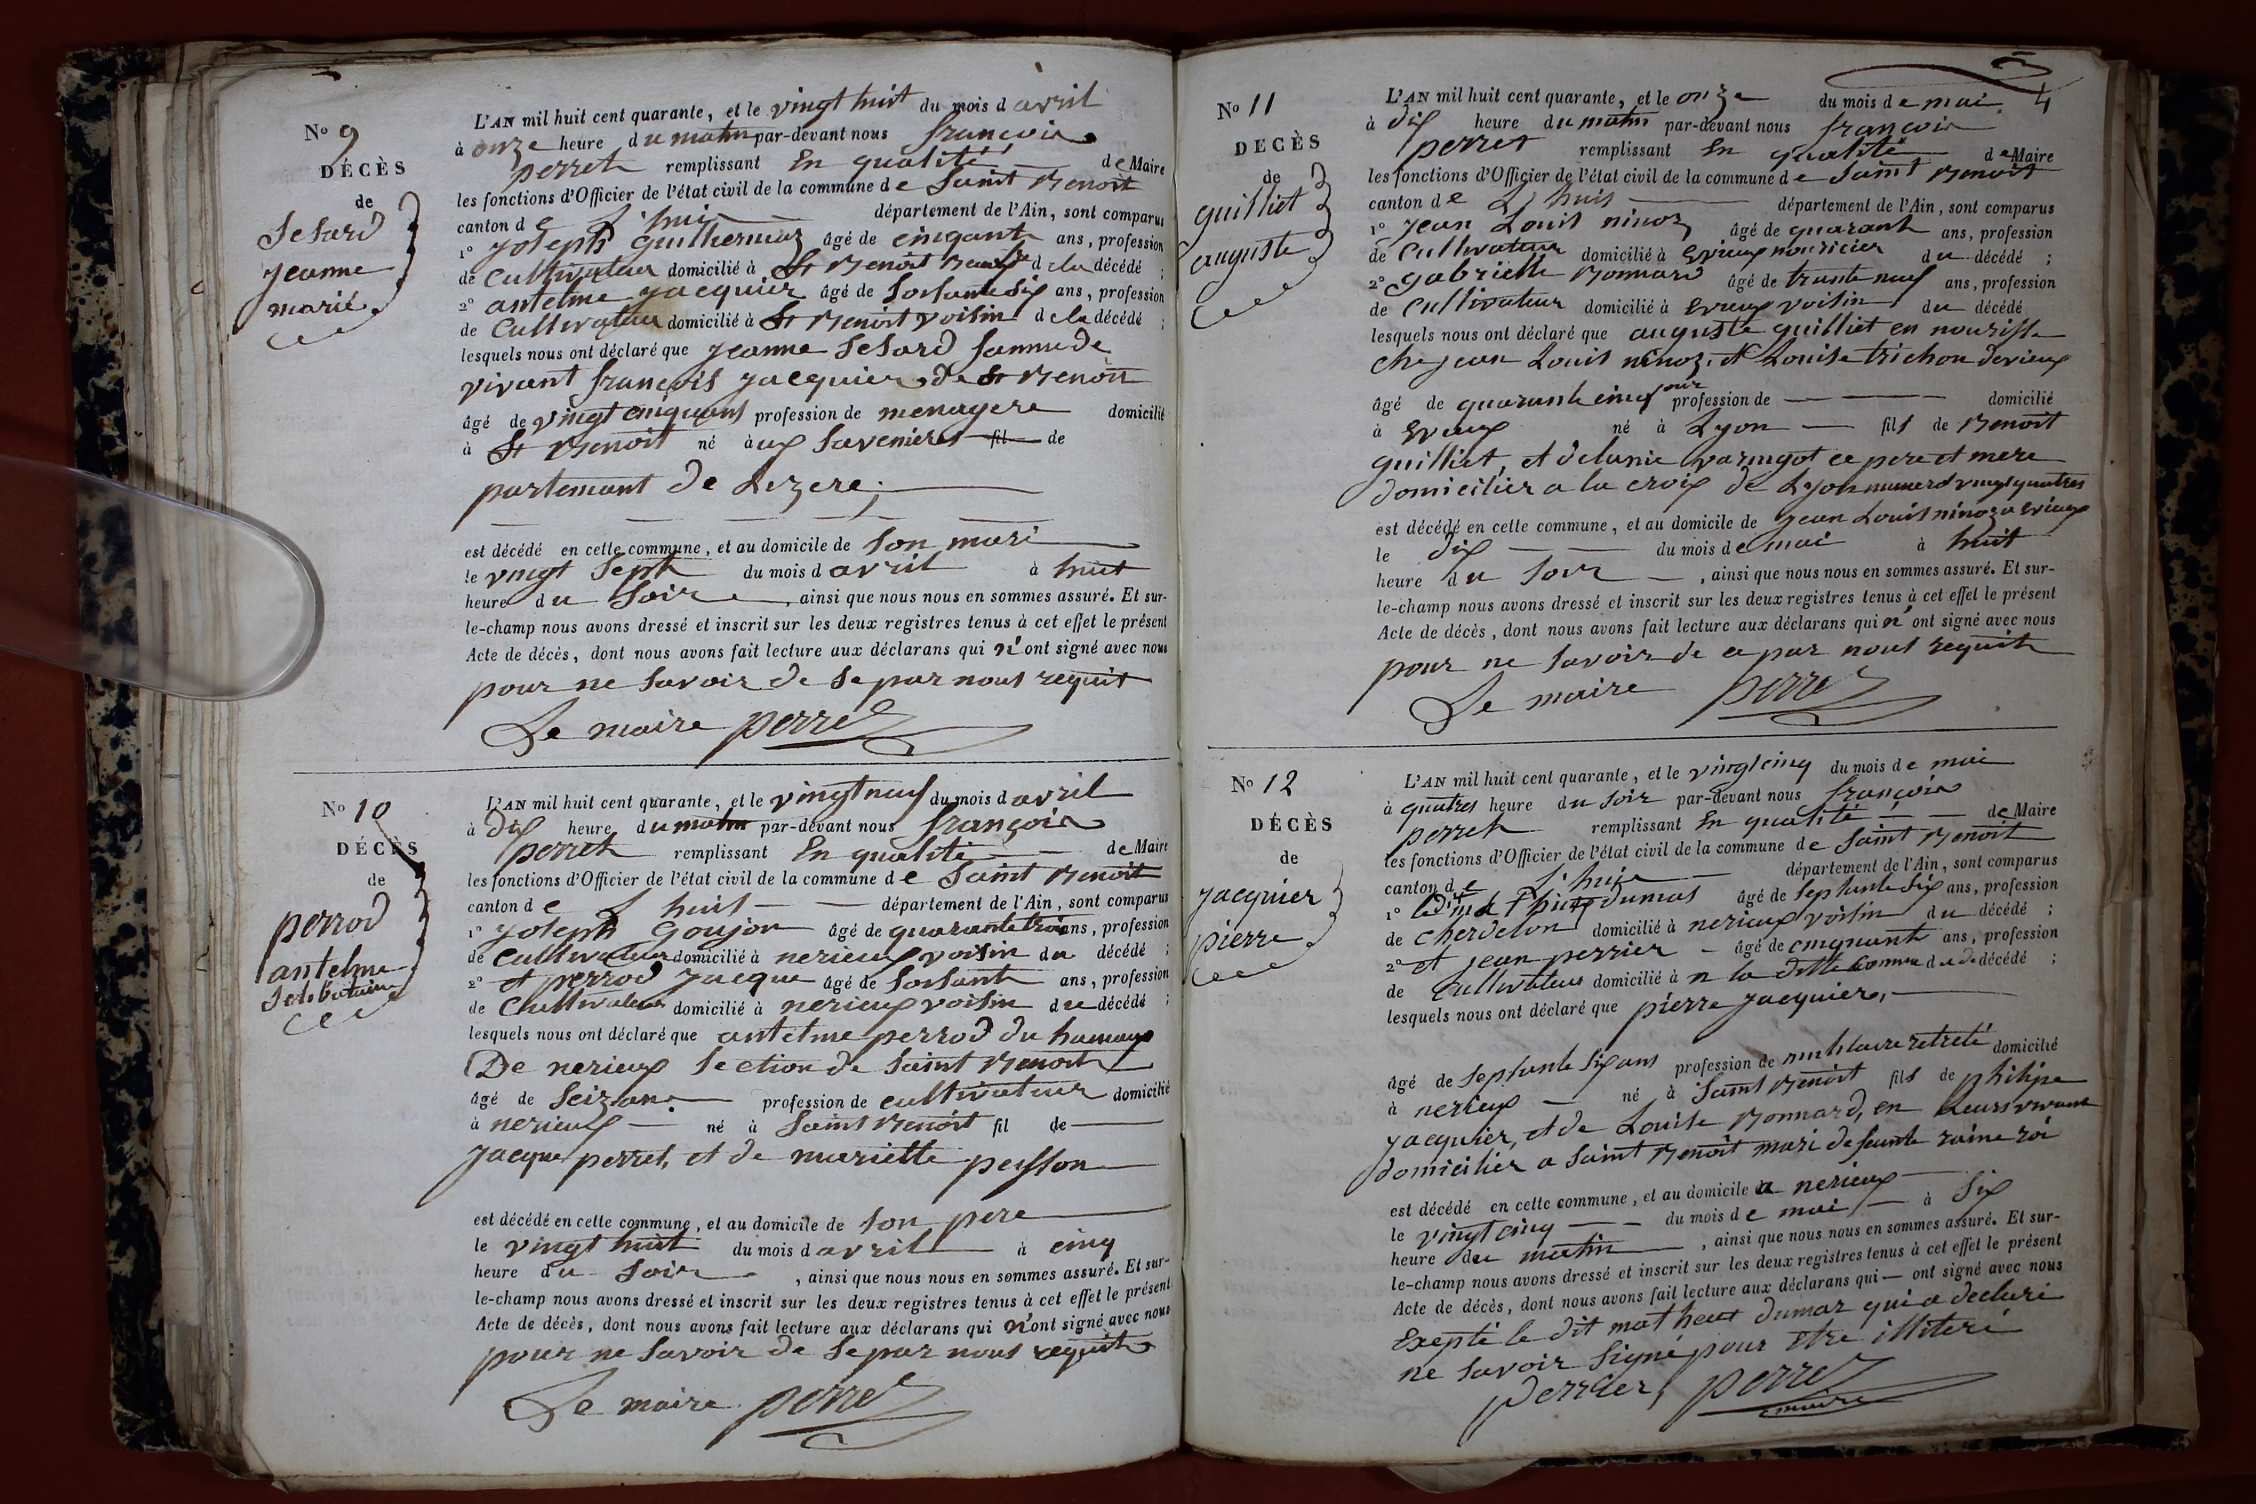 No 9
DÉCÈS
de
Sesard
jeanne
marie
L'AN mil huit cent quarante, et le vingt huit du mois d avril
à onze heure du matin par-devant nous françois
perret remplissant En qualité de Maire
les fonctions d'Officier de l'état civil de la commune de Saint Benoit
canton de L'huis département de l'Ain, sont comparus
1° joseph guillermin âgé de cinqante ans, profession
de Cultivateur domicilié à St Benoit de la décédé ;
2° antelme jacquier âgé de soisante Six ans, profession
de Cultivateur domicilié à St Benoit voisin de la décédé ;
lesquels nous ont déclaré que jeanne Sesard famme de
vivant françois jacquier de St Benoit
âgé de vingt cinq ans profession de menagere domicilié
à St Benoit né à aux Savenieres fil de
partemant de Lizere ;
est décédé en cette commune, et au domicile de son mari
le vingt Sept du mois d avril à huit
heure du Soir, ainsi que nous nous en sommes assuré. Et sur-
le-champ nous avons dressé et inscrit sur les deux registres tenus à cet effet le présent
Acte de décès, dont nous avons fait lecture aux déclarans qui n'ont signé avec nous
pour ne savoir de se par nous requit
Le maire perret
No 10
DÉCÈS
de
perrod
antelme
Selibataire
L'AN mil huit cent quarante, et le vingt neuf du mois d avril
à Dix heure du matin par-devant nous françois
perret remplissant En qualité de Maire
les fonctions d'Officier de l'état civil de la commune de Saint Benoit
canton de L'huis département de l'Ain, sont comparus
1° joseph Goujon âgé de quarante trois ans, profession
de Cultivateur domicilié à nerieux voisin du décédé ;
2° et perrod jacque âgé de soisante ans, profession
de Cultivateur domicilié à nerieux voisin du décédé ;
lesquels nous ont déclaré que antelme perrod du hamaux
De nerieux Section de Saint Benoit
âgé de Seize ans profession de cultivateur domicilié
à nerieux né à Saint Benoit fil de
jacque perret, et de mariette peysson
est décédé en cette commune, et au domicile de son pere
le vingt huit du mois d avril à cinq
heure du Soir, ainsi que nous nous en sommes assuré. Et sur-
le-champ nous avons dressé et inscrit sur les deux registres tenus à cet effet le présent
Acte de décès, dont nous avons fait lecture aux déclarans qui n'ont signé avec nous
pour ne savoir de se par nous requit
Le maire perret
4
No 11
DÉCÈS
de
guilliet
auguste
L'AN mil huit cent quarante, et le onze du mois de mai
à dix heure du matin par-devant nous françois
perret remplissant En qualité de Maire
les fonctions d'Officier de l'état civil de la commune de Saint Benoit
canton de L'huis département de l'Ain, sont comparus
1° jean Louis ninoz âgé de quarante ans, profession
de Cultivateur domicilié à Evieux nouricier du décédé ;
2° gabrielle Bonnard âgé de trante neuf ans, profession
de Cultivateur domicilié à Evieux voisin du décédé
lesquels nous ont déclaré que auguste guilliet en nourisse
che jean Louis ninoz et Louise trichon devieux
âgé de quarante cinq jour profession de domicilié
à Evieux né à Lyon fils de Benoit
guilliet, et delunie varingot ce pere et mere
domicilier a la croix de Lyon numero vingt quatres
est décédé en cette commune, et au domicile de jean Louis ninoz a Evieux
le dix du mois de mai à huit
heure du soir, ainsi que nous nous en sommes assuré. Et sur-
le-champ nous avons dressé et inscrit sur les deux registres tenus à cet effet le présent
Acte de décès, dont nous avons fait lecture aux déclarans qui n'ont signé avec nous
pour ne savoir de ce par nous requit
Le maire perret
No 12
DÉCÈS
de
jacquier
pierre
L'AN mil huit cent quarante, et le vingt cinq du mois de mai
à quatres heure du soir par-devant nous françois
perret remplissant En qualité de Maire
les fonctions d'Officier de l'état civil de la commune de Saint Benoit
canton de L'huis département de l'Ain, sont comparus
1° dumas âgé de Septante Six ans, profession
de domicilié à nerieux voisin du décédé ;
2° et jean perrier âgé de cinquante ans, profession
de Cultivateur domicilié à la ditte Comune du décédé ;
lesquels nous ont déclaré que pierre jacquier,
âgé de Septante Six ans profession de militaire retreté domicilié
à nerieux né à Saint Benoit fils de philipe
jacquier, et de Louise Bonnard, en Leurs vivant
domicilier a Saint Benoit mari defeunte raine roi
est décédé en cette commune, et au domicile a nerieux
le vingt cinq du mois de mai à Six
heure du matin, ainsi que nous nous en sommes assuré. Et sur-
le-champ nous avons dressé et inscrit sur les deux registres tenus à cet effet le présent
Acte de décès, dont nous avons fait lecture aux déclarans qui — ont signé avec nous
Exepté le dit matheux dumas qui a declaré
ne savoir signé pour etre illiteré
perrier, perret
maire